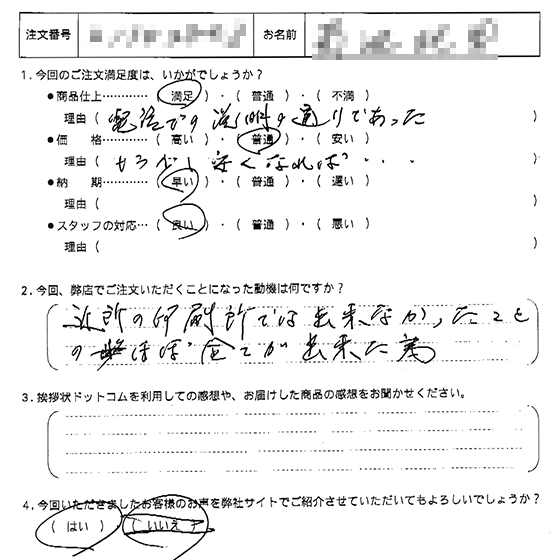 注文番号
お名前
1.今回のご注文満足度は、いかがでしょうか?
●商品仕上…………( 満足 )・( 普通 )・( 不満 )
理由( 電話での説明の通りであった )
●価 格…………( 高い )・( 普通 )・( 安い )
理由( もう少し安くなれば・・・ )
●納 期…………( 早い )・( 普通 )・( 遅い )
理由( )
●スタッフの対応…( 良い )・( 普通 )・( 悪い )
理由( )
2.今回、弊店でご注文いただくことになった動機は何ですか?
近所の印刷所では出来なかったこと
のほぼ全てが出来た為
3.挨拶状ドットコムを利用しての感想や、お届けした商品の感想をお聞かせください。
4.今回いただきましたお客様のお声を弊社サイトでご紹介させていただいてもよろしいでしょうか?
( はい ) ( いいえ )